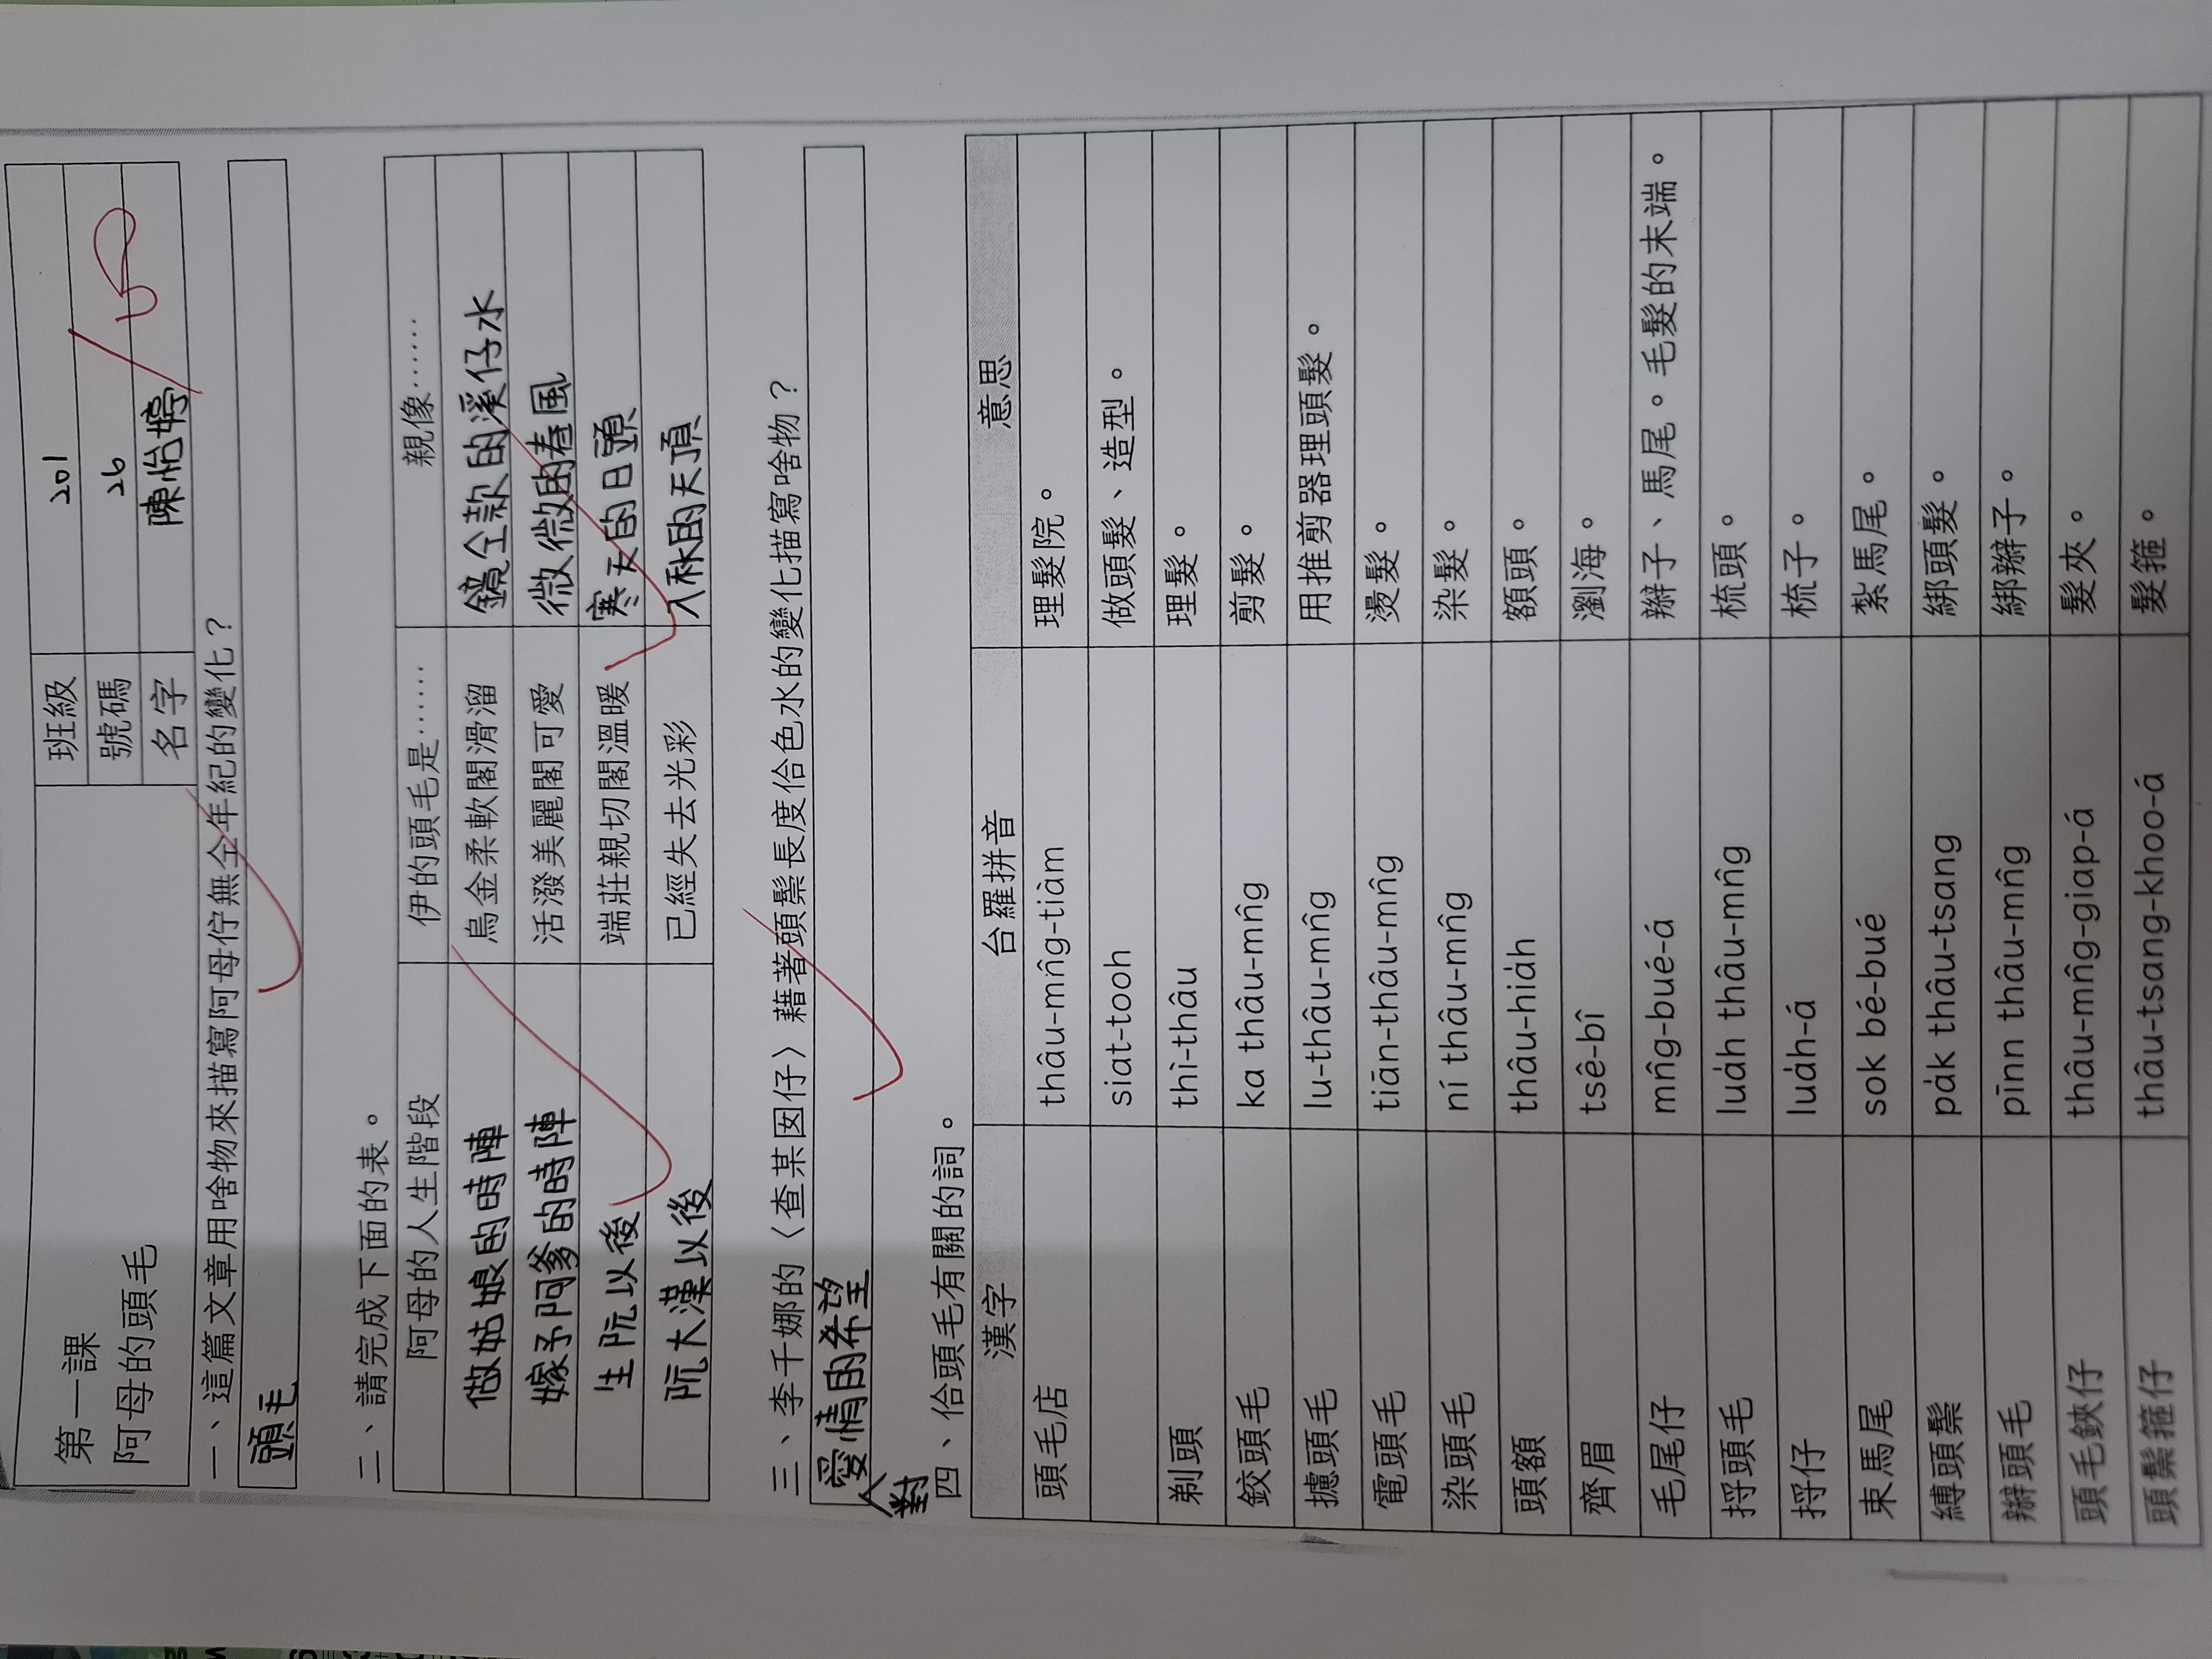 第一課
阿母的頭毛
班級 201
號碼 26
名字 陳怡婷
一、這篇文章用啥物來描寫阿母佇無仝年紀的變化？
頭毛
二、請完成下面的表。
阿母的人生階段 伊的頭毛是…… 親像……
做姑娘的時陣 烏金柔軟閣滑溜 鏡仝款的溪仔水
嫁予阿爹的時陣 活潑美麗閣可愛 微微的春風
生阮以後 端莊親切閣溫暖 寒天的日頭
阮大漢以後 已經失去光彩 入秋的天頂
三、李千娜的〈查某囡仔〉藉著頭鬃長度佮色水的變化描寫啥物？
對愛情的希望
四、佮頭毛有關的詞。
漢字 台羅拼音 意思
頭毛店 thâu-mn̂g-tiàm 理髮院。
siat-tooh 做頭髮、造型。
剃頭 thì-thâu 理髮。
鉸頭毛 ka thâu-mn̂g 剪髮。
攄頭毛 lu-thâu-mn̂g 用推剪器理頭髮。
電頭毛 tiān-thâu-mn̂g 燙髮。
染頭毛 ní thâu-mn̂g 染髮。
頭額 thâu-hia̍h 額頭。
齊眉 tsê-bî 瀏海。
毛尾仔 mn̂g-bué-á 辮子、馬尾。毛髮的末端。
捋頭毛 lua̍h thâu-mn̂g 梳頭。
捋仔 lua̍h-á 梳子。
束馬尾 sok bé-bué 紮馬尾。
縛頭鬃 pa̍k thâu-tsang 綁頭髮。
辮頭毛 pīnn thâu-mn̂g 綁辮子。
頭毛鋏仔 thâu-mn̂g-giap-á 髮夾。
頭鬃箍仔 thâu-tsang-khoo-á 髮箍。